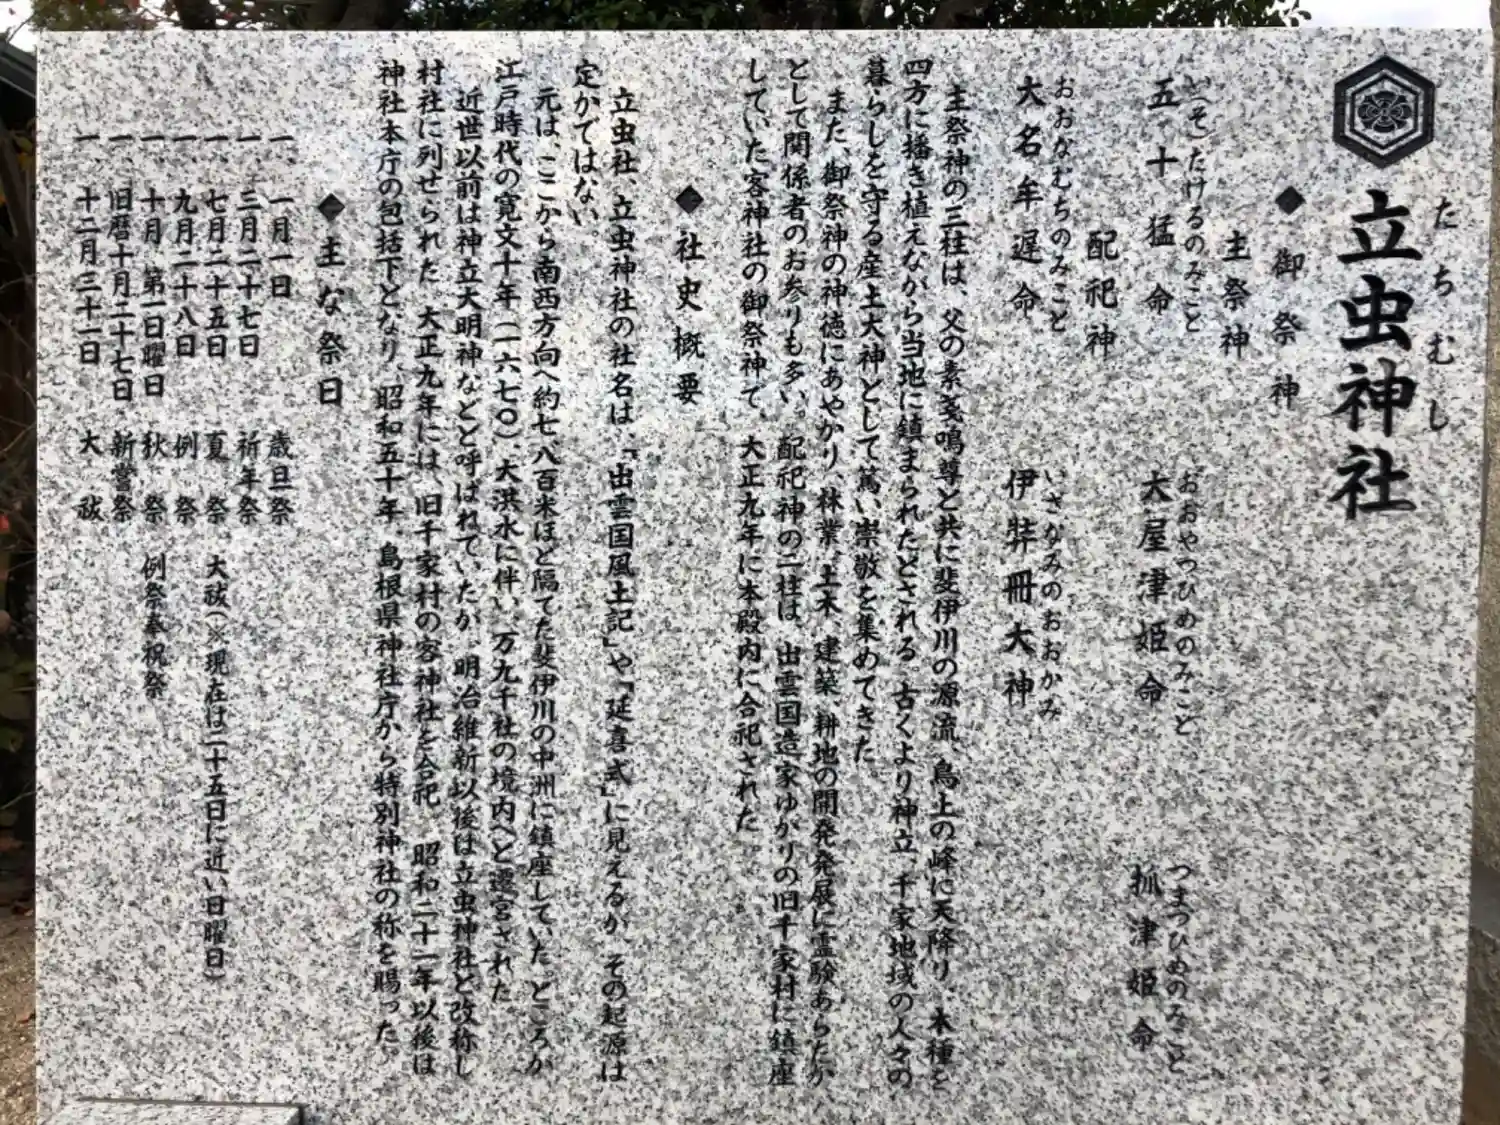 たちむし
立虫神社
◆御祭神
主祭神
い(そ)たけるのみこと おおやつひめのみこと つまつひめのみこと
五十猛命 大屋津姫命 抓津姫命
配祀神
おおなむちのみこと いざなみのおおかみ
大名牟遅命 伊弉冊大神
主祭神の三柱は、父の素戔嗚尊と共に斐伊川の源流、鳥上の峰に天降り、木種を
四方に播き植えながら当地に鎮まられたとされる。古くより神立、千家地域の人々の
暮らしを守る産土大神として篤い崇敬を集めてきた。
また、御祭神の神徳にあやかり、林業、土木、建築、耕地の開発発展に霊験あらたか
として関係者のお参りも多い。配祀神の二柱は、出雲国造家ゆかりの旧千家村に鎮座
していた客神社の御祭神で、大正九年に本殿内に合祀された。
◆社史概要
立虫社、立虫神社の社名は、「出雲国風土記」や「延喜式」に見えるが、その起源は
定かではない。
元は、ここから南西方向へ約七、八百米ほど隔てた斐伊川の中洲に鎮座していた。ところが
江戸時代の寛文十年(一六七〇)、大洪水に伴い、万九千社の境内へと遷宮された。
近世以前は神立大明神などと呼ばれていたが、明治維新以後は立虫神社と改称し
村社に列せられた。大正九年には、旧千家村の客神社を合祀。昭和二十一年以後は
神社本庁の包括下となり、昭和五十年、島根県神社庁から特別神社の称を賜った。
◆主な祭日
一 一月一日 歳旦祭
一 三月二十七日 祈年祭
一 七月二十五日 夏祭 大祓(※現在は二十五日に近い日曜日)
一 九月二十八日 例祭
一 十月 第一日曜日 秋祭 例祭奉祝祭
一 旧暦十月二十七日 新嘗祭
一 十二月三十一日 大祓